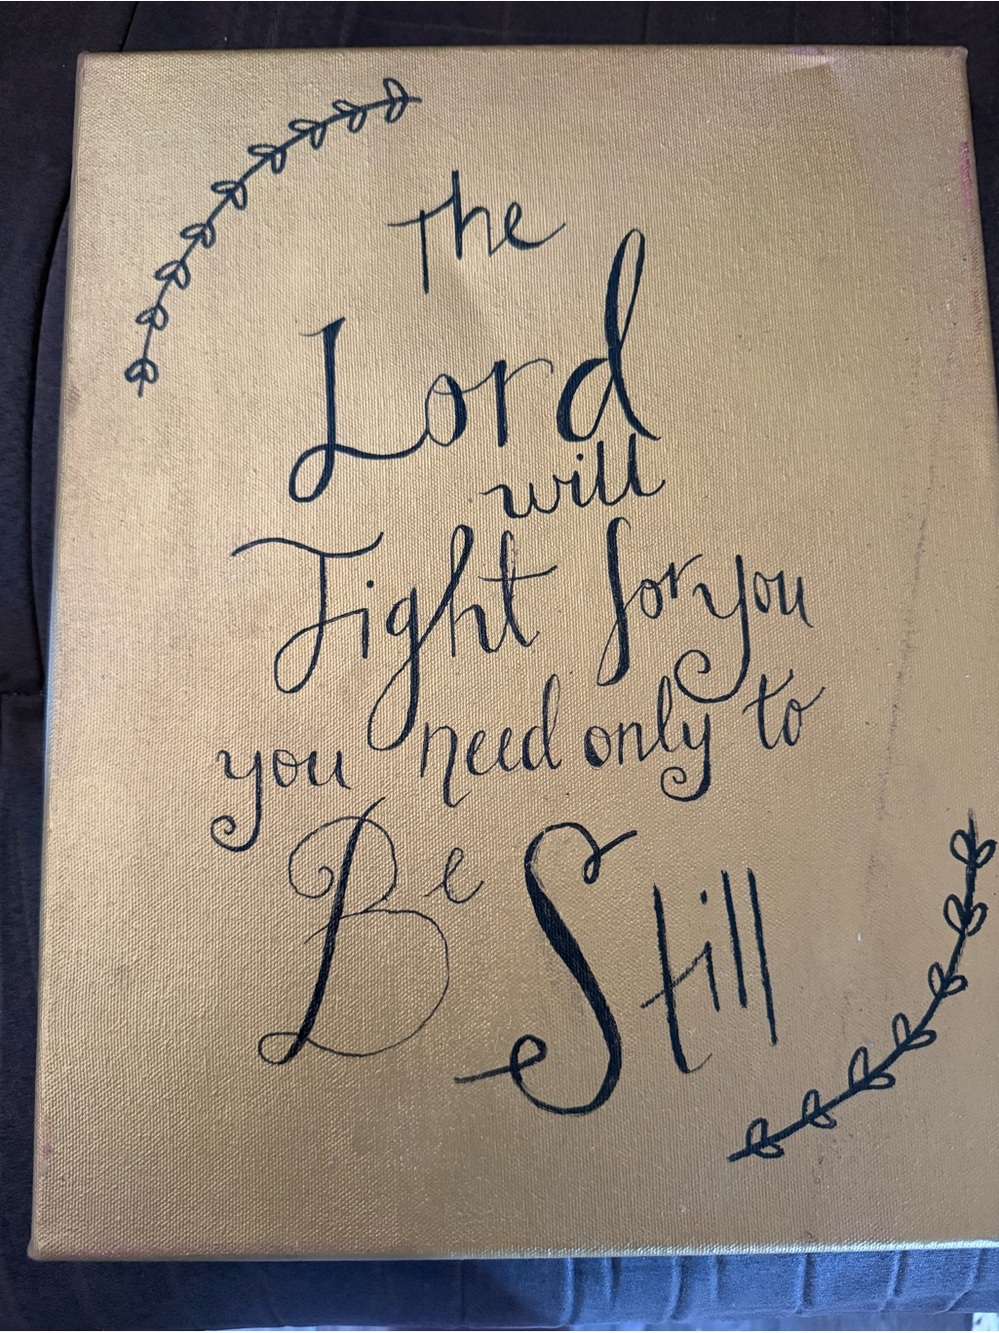 The
Lord
will
Fight for you
you need only to
Be Still